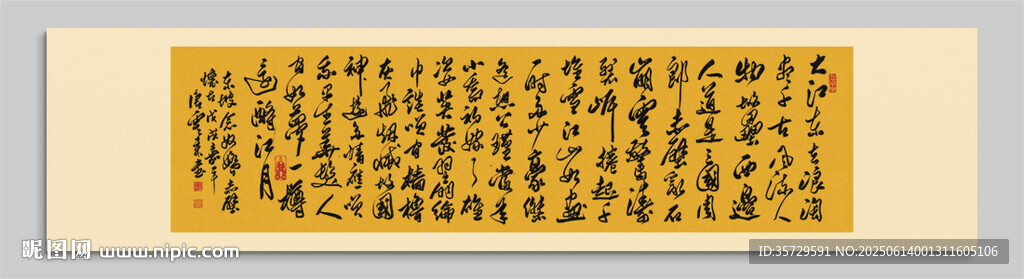 大江东去浪淘
尽千古风流人
物故壘西邊
人道是三國周
郎赤壁乱石
崩雲驚濤
裂岸捲起千
堆雪江山如画
一时多少豪傑
遥想公瑾當年
小乔初嫁了雄
姿英發羽扇綸
巾談笑间樯櫓
灰飛烟滅故國
神遊多情應笑
我早生華髮人
间如夢一樽
還酹江月
东坡念奴娇赤壁
懷古戊戌嘉平
昵图网 www.nipic.com
ID:35729591 NO:20250614001311605106